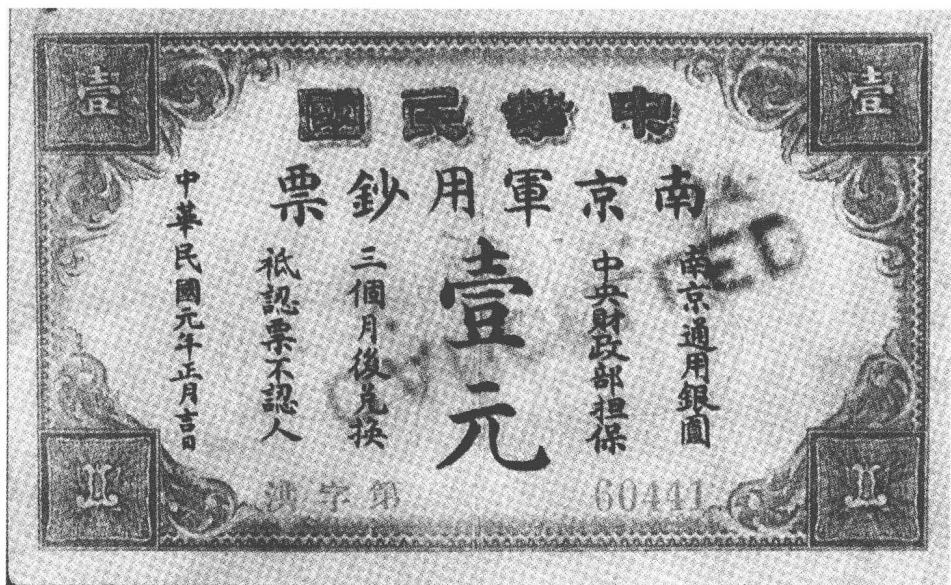 壹
壹
中華民國
南京軍用鈔票
南京通用銀圓
中央財政部担保
壹元
三個月後兌換
祗認票不認人
中華民國元年正月吉日
第字
60441
1
1